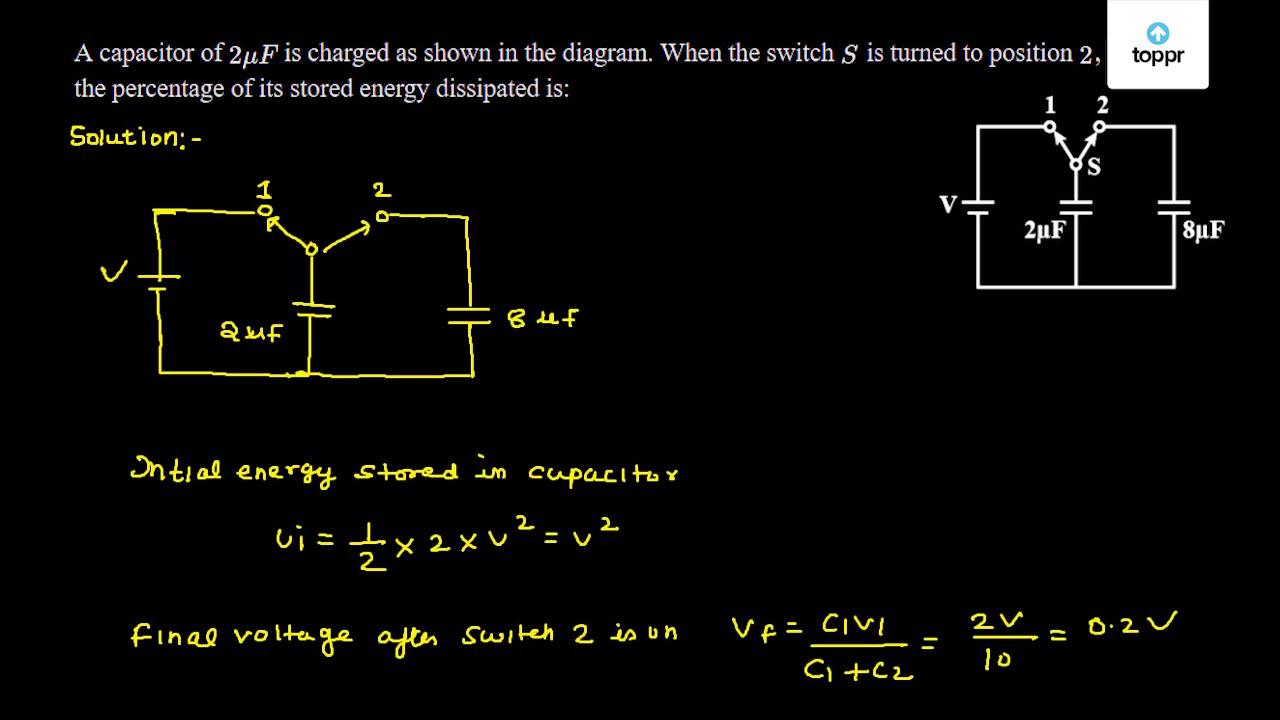 toppr
A capacitor of 2μF is charged as shown in the diagram. When the switch S is turned to position 2,
the percentage of its stored energy dissipated is:
1 2
S
V
2μF
8μF
Solution:-
1 2
V
2μf
8μf
Intial energy stored in cupacitor
Ui = 1/2 × 2 × V² = V²
Final voltage after switch 2 is on Vf = C1V1/C1+C2 = 2V/10 = 0.2V